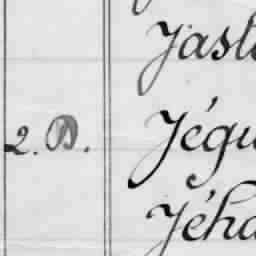 Jasl
2. B. Jégu
Jéha